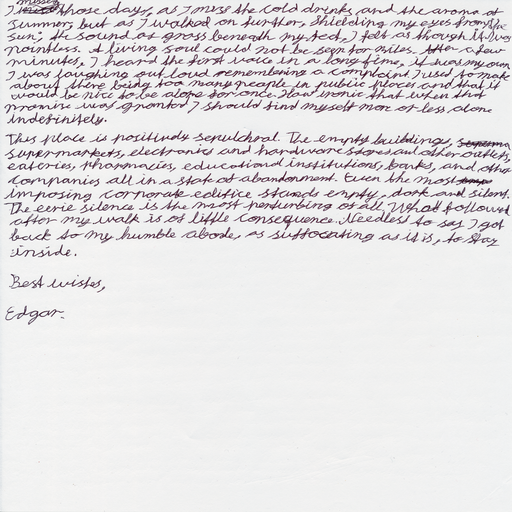 missing
I those days, as I miss the cold drinks and the aroma of
summer, but as I walked on further, shielding my eyes from the
sun; the sound of grass beneath my feet, I felt as though it was
pointless. A living soul could not be seen for miles. After a few
minutes, I heard the first voice in a long time, it was my own.
I was laughing out loud remembering a complaint I used to make
about there being too many people in public places and that it
would be nice to be alone for once. How ironic that when that
promise was granted I should find myself more or less alone
indefinitely.
This place is positively sepulchral. The empty buildings,
supermarkets, electronics and hardware stores and other outlets,
eateries, pharmacies, educational institutions, banks, and other
companies all in a state of abandonment. Even the most
imposing corporate edifice stands empty, dark and silent.
The eerie silence is the most perturbing of all. What followed
after my walk is of little consequence. Needless to say I got
back to my humble abode, as suffocating as it is, to stay
inside.
Best wishes,
Edgar.